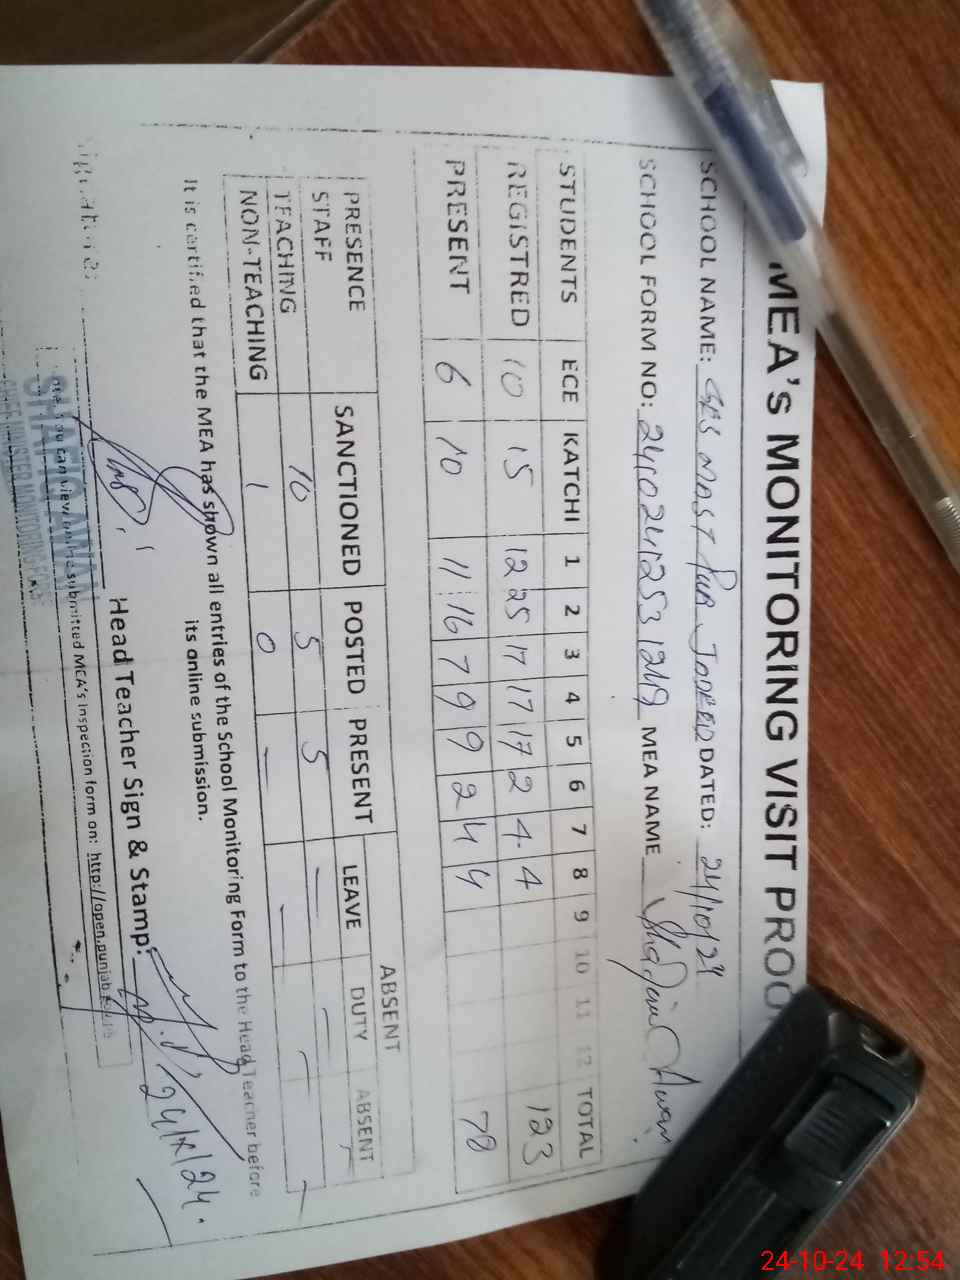 MEA's MONITORING VISIT PROO
SCHOOL NAME: GES MAST PUR JADEED DATED: 24/10/24
SCHOOL FORM NO: MEA NAME Awan
STUDENTS ECE KATCHI 1 2 3 4 5 6 7 8 9 10 11 12 TOTAL
REGISTRED 10 15 12 25 17 17 17 2 4 4 123
PRESENT 6 10 11 16 7 9 9 2 4 4 78
PRESENCE SANCTIONED POSTED PRESENT ABSENT
STAFF LEAVE DUTY ABSENT
TEACHING 10 5 5 - - -
NON-TEACHING 1 0 - - -
It is certified that the MEA has shown all entries of the School Monitoring Form to the Head Teacher before
its online submission.
Signature: Head Teacher Sign & Stamp: 24/10/24.
SHAFIQ AWAN
CHIEF MINISTER MONITORING FORCE
you can view submitted MEA's inspection form on: http://open.punjab.gov.pk
24-10-24 12:54